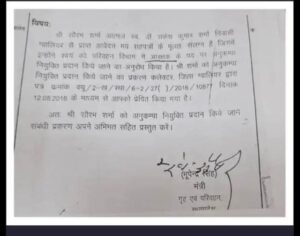 विषय:
श्री सौरभ शर्मा आत्मज स्व. डॉ राकेश कुमार शर्मा निवासी
ग्वालियर से प्राप्त आवेदन मय सहपत्रों के मूलतः संलग्न है जिसमें
इन्होंने स्वयं को परिवहन विभाग में आरक्षक के पद पर अनुकम्पा
नियुक्ति प्रदान किये जाने का अनुरोध किया है। श्री शर्मा को अनुकम्पा
नियुक्ति प्रदान किये जाने का प्रकरण कलेक्टर, जिला ग्वालियर द्वारा
पत्र क्रमांक क्यू/2-स्था/6-2/27( )/2016/10877 दिनांक
12.08.2016 के माध्यम से आपको प्रेषित किया गया है।
अतः श्री सौरभ शर्मा को अनुकम्पा नियुक्ति प्रदान किये जाने
संबंधी प्रकरण अपने अभिमत सहित प्रस्तुत करें।
(भूपेन्द्र सिंह)
मंत्री
गृह एवं परिवहन